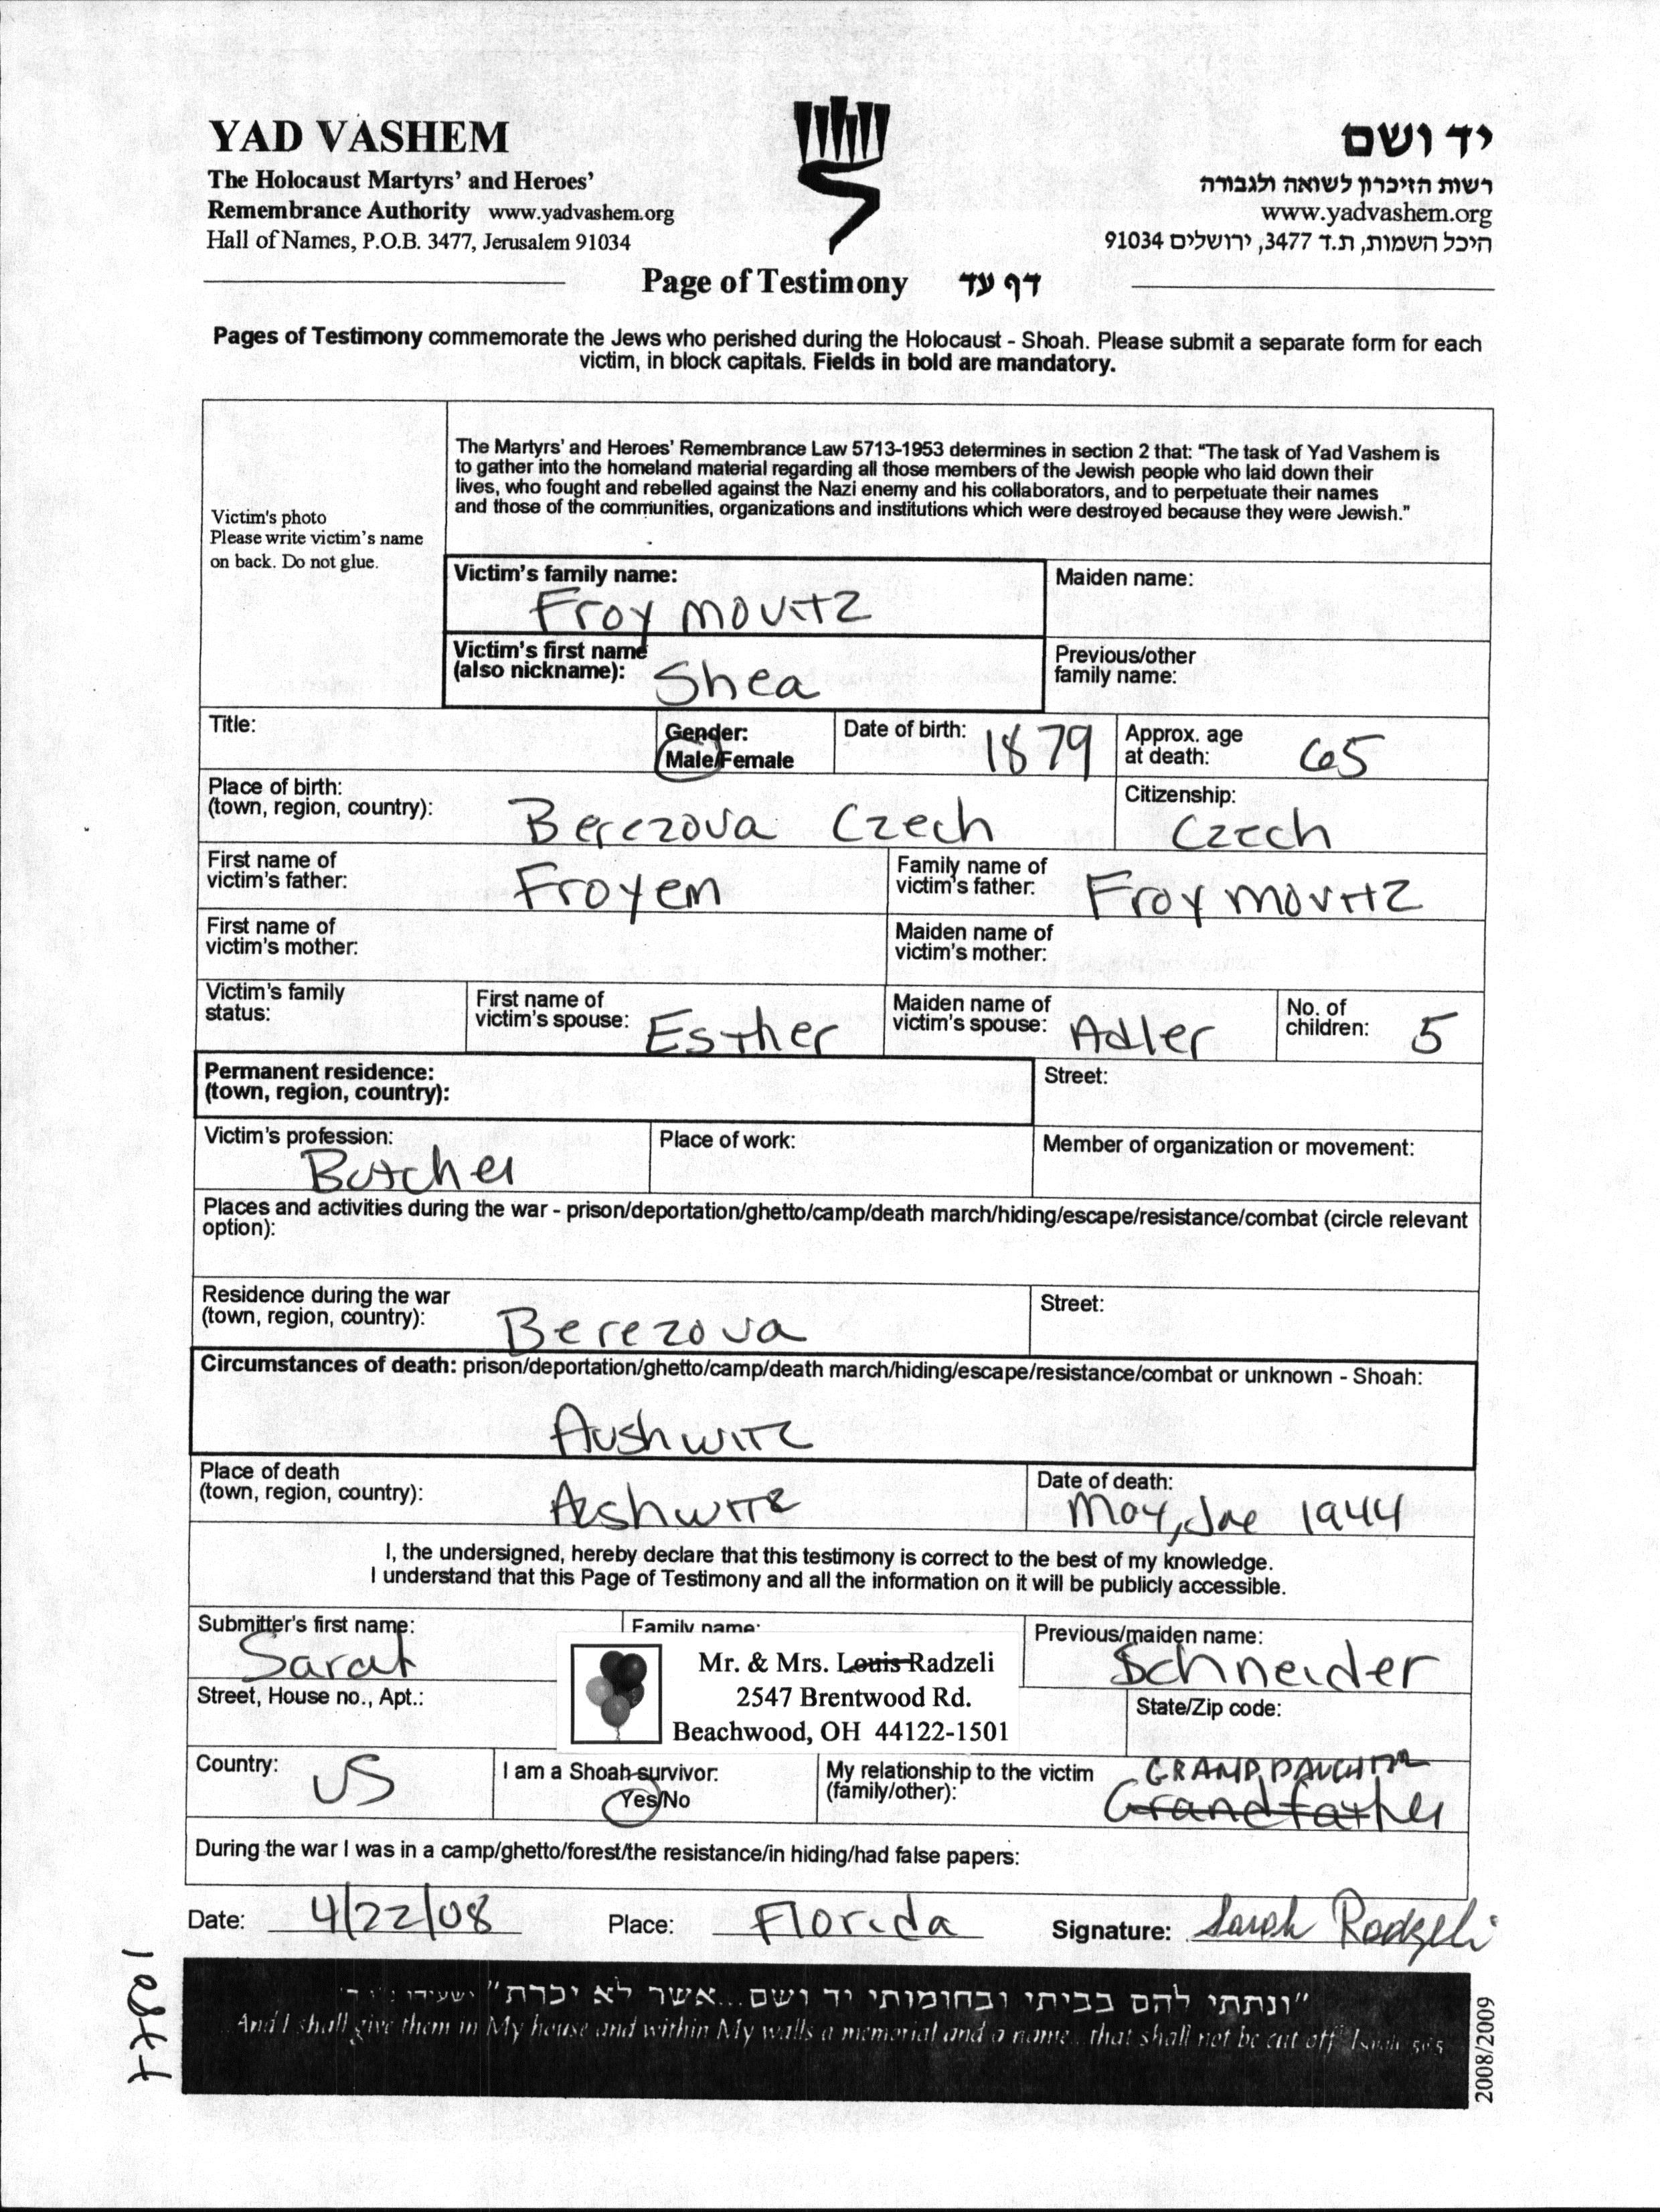 YAD VASHEM
The Holocaust Martyrs' and Heroes'
Remembrance Authority www.yadvashem.org
Hall of Names, P.O.B. 3477, Jerusalem 91034
יד ושם
רשות הזיכרון לשואה ולגבורה
www.yadvashem.org
היכל השמות, ת.ד 3477, ירושלים 91034
Page of Testimony דף עד
Pages of Testimony commemorate the Jews who perished during the Holocaust - Shoah. Please submit a separate form for each
victim, in block capitals. Fields in bold are mandatory.
Victim's photo
Please write victim's name
on back. Do not glue.
The Martyrs' and Heroes' Remembrance Law 5713-1953 determines in section 2 that: "The task of Yad Vashem is
to gather into the homeland material regarding all those members of the Jewish people who laid down their
lives, who fought and rebelled against the Nazi enemy and his collaborators, and to perpetuate their names
and those of the communities, organizations and institutions which were destroyed because they were Jewish."
Victim's family name:
Froymovitz
Maiden name:
Victim's first name
(also nickname): Shea
Previous/other
family name:
Title:
Gender:
Male/Female
Date of birth: 1879
Approx. age
at death: 65
Place of birth:
(town, region, country): Berezova Czech
Citizenship:
Czech
First name of
victim's father: Froyem
Family name of
victim's father: Froymovitz
First name of
victim's mother:
Maiden name of
victim's mother:
Victim's family
status:
First name of
victim's spouse: Esther
Maiden name of
victim's spouse: Adler
No. of
children: 5
Permanent residence:
(town, region, country):
Street:
Victim's profession:
Butcher
Place of work:
Member of organization or movement:
Places and activities during the war - prison/deportation/ghetto/camp/death march/hiding/escape/resistance/combat (circle relevant
option):
Residence during the war
(town, region, country): Berezova
Street:
Circumstances of death: prison/deportation/ghetto/camp/death march/hiding/escape/resistance/combat or unknown - Shoah:
Aushwitz
Place of death
(town, region, country): Ashwitz
Date of death:
May, June 1944
I, the undersigned, hereby declare that this testimony is correct to the best of my knowledge.
I understand that this Page of Testimony and all the information on it will be publicly accessible.
Submitter's first name:
Sarah
Family name:
Previous/maiden name:
Schneider
Mr. & Mrs. Louis Radzeli
2547 Brentwood Rd.
Beachwood, OH 44122-1501
Street, House no., Apt.:
State/Zip code:
Country: US
I am a Shoah survivor:
Yes/No
My relationship to the victim
(family/other):
GRANDDAUGHTER
Grandfather
During the war I was in a camp/ghetto/forest/the resistance/in hiding/had false papers:
Date: 4/22/08 Place: Florida Signature: Sarah Radzeli
"ונתתי להם בביתי ובחומותי יד ושם...אשר לא יכרת"
And I shall give them in My house and within My walls a memorial and a name...that shall not be cut off
2008/2009